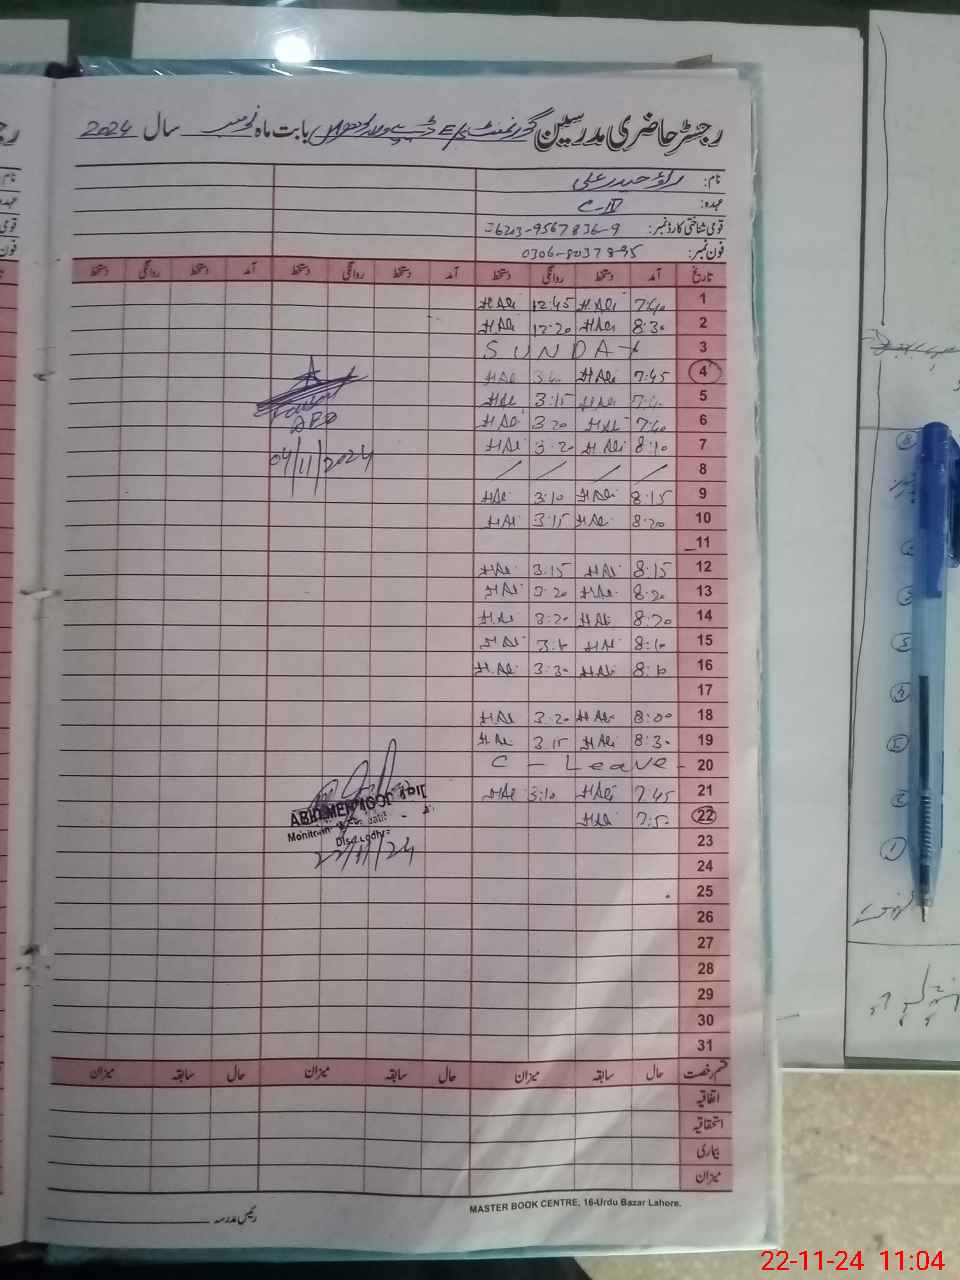 رجسٹر حاضری مدرسین گورنمنٹ بابت ماہ نومبر سال 2024
نام: راؤ حیدر علی
عہدہ: C-IV
قومی شناختی کارڈ نمبر: 36203-9567836-9
فون نمبر: 0306-8037895
تاریخ آمد دستخط روانگی دستخط آمد دستخط روانگی دستخط آمد دستخط روانگی دستخط
1 7:40 H.Ali 12:45 H.Ali
2 8:30 H.Ali 12:20 H.Ali
3 SUNDAY
4 7:45 H.Ali H.Ali
5 H.Ali 3:15 H.Ali
6 7:40 H.Ali 3:20 H.Ali
7 8:10 H.Ali 3:20 H.Ali
04/11/2024
8 / / / /
9 8:15 H.Ali 3:10 H.Ali
10 8:20 H.Ali 3:15 H.Ali
11
12 8:15 H.Ali 3:15 H.Ali
13 8:20 H.Ali 3:20 H.Ali
14 8:20 H.Ali 3:20 H.Ali
15 8:10 H.Ali H.Ali
16 8:10 H.Ali 3:30 H.Ali
17
18 8:00 H.Ali 3:20 H.Ali
19 8:30 H.Ali 3:15 H.Ali
20 C - Leave -
21 7:45 H.Ali 3:10 H.Ali
22 7:50 H.Ali
ABID MEHMOOD
22/11/24
23
24
25
26
27
28
29
30
31
قسم رخصت حال سابقہ میزان حال سابقہ میزان حال سابقہ میزان
اتفاقیہ
استحقاقیہ
بیماری
میزان
رئیس مدرسہ
MASTER BOOK CENTRE, 16-Urdu Bazar Lahore.
22-11-24 11:04